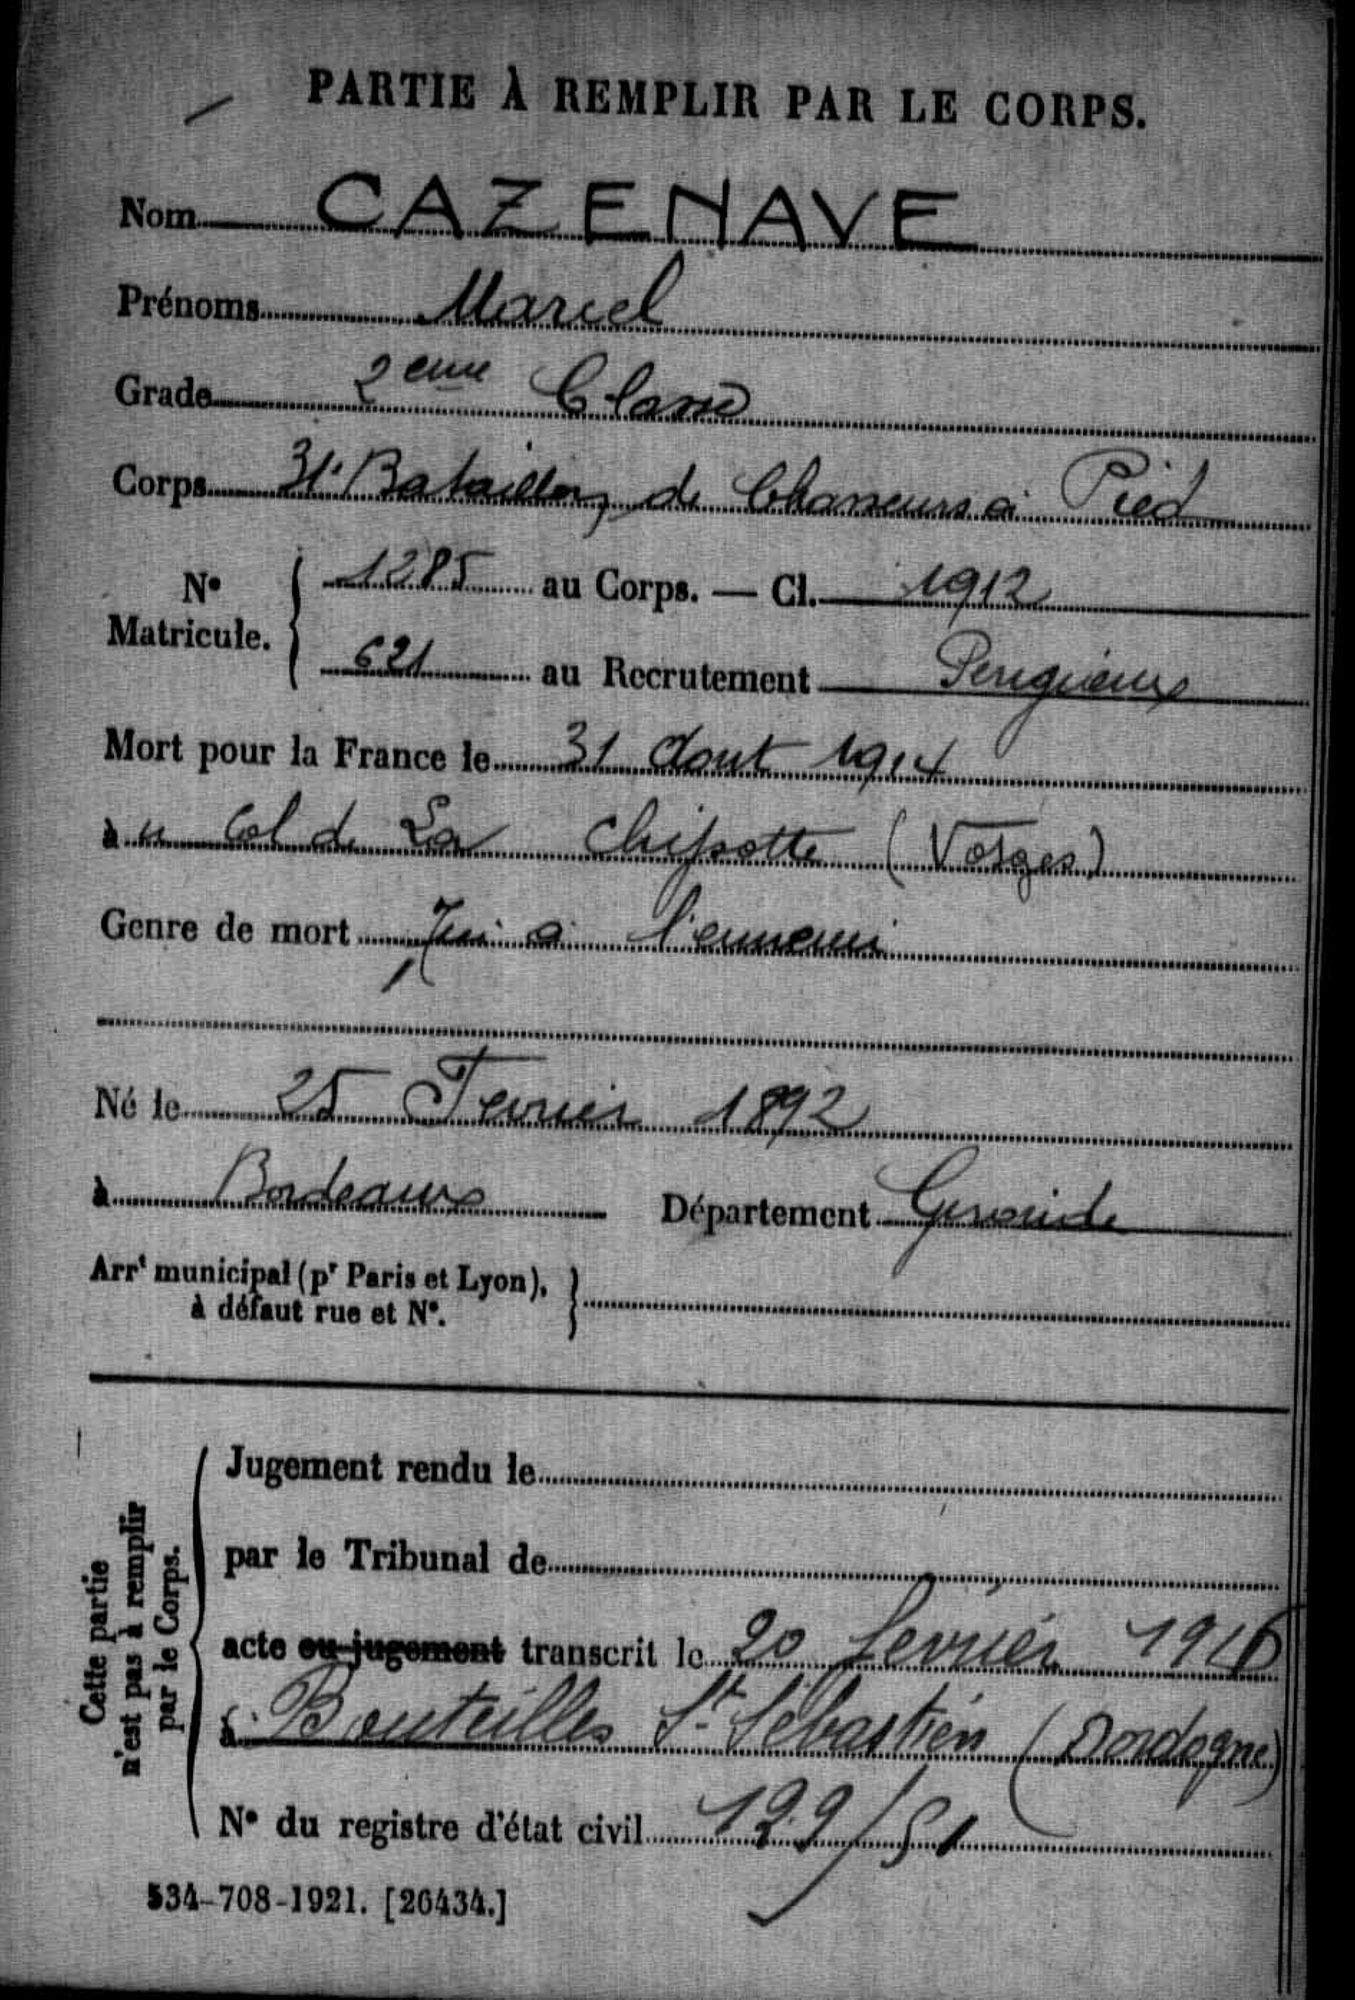 PARTIE À REMPLIR PAR LE CORPS.
Nom CAZENAVE
Prénoms Marcel
Grade 2eme Classe
Corps 31e Bataillon de Chasseurs à Pied
N° Matricule. 1285 au Corps. — Cl. 1912
621 au Recrutement Perigueux
Mort pour la France le 31 Aout 1914
à u Col de La Chipotte (Vosges)
Genre de mort Tué à l'ennemi
Né le 25 Fevrier 1892
à Bordeaux Département Gironde
Arrt municipal (pr Paris et Lyon),
à défaut rue et N°.
Cette partie
n'est pas à remplir
par le Corps.
Jugement rendu le
par le Tribunal de
acte ou jugement transcrit le 20 fevrier 1916
à Bouteilles St Sébastien (Dordogne)
N° du registre d'état civil 129/51
534-708-1921. [26434.]